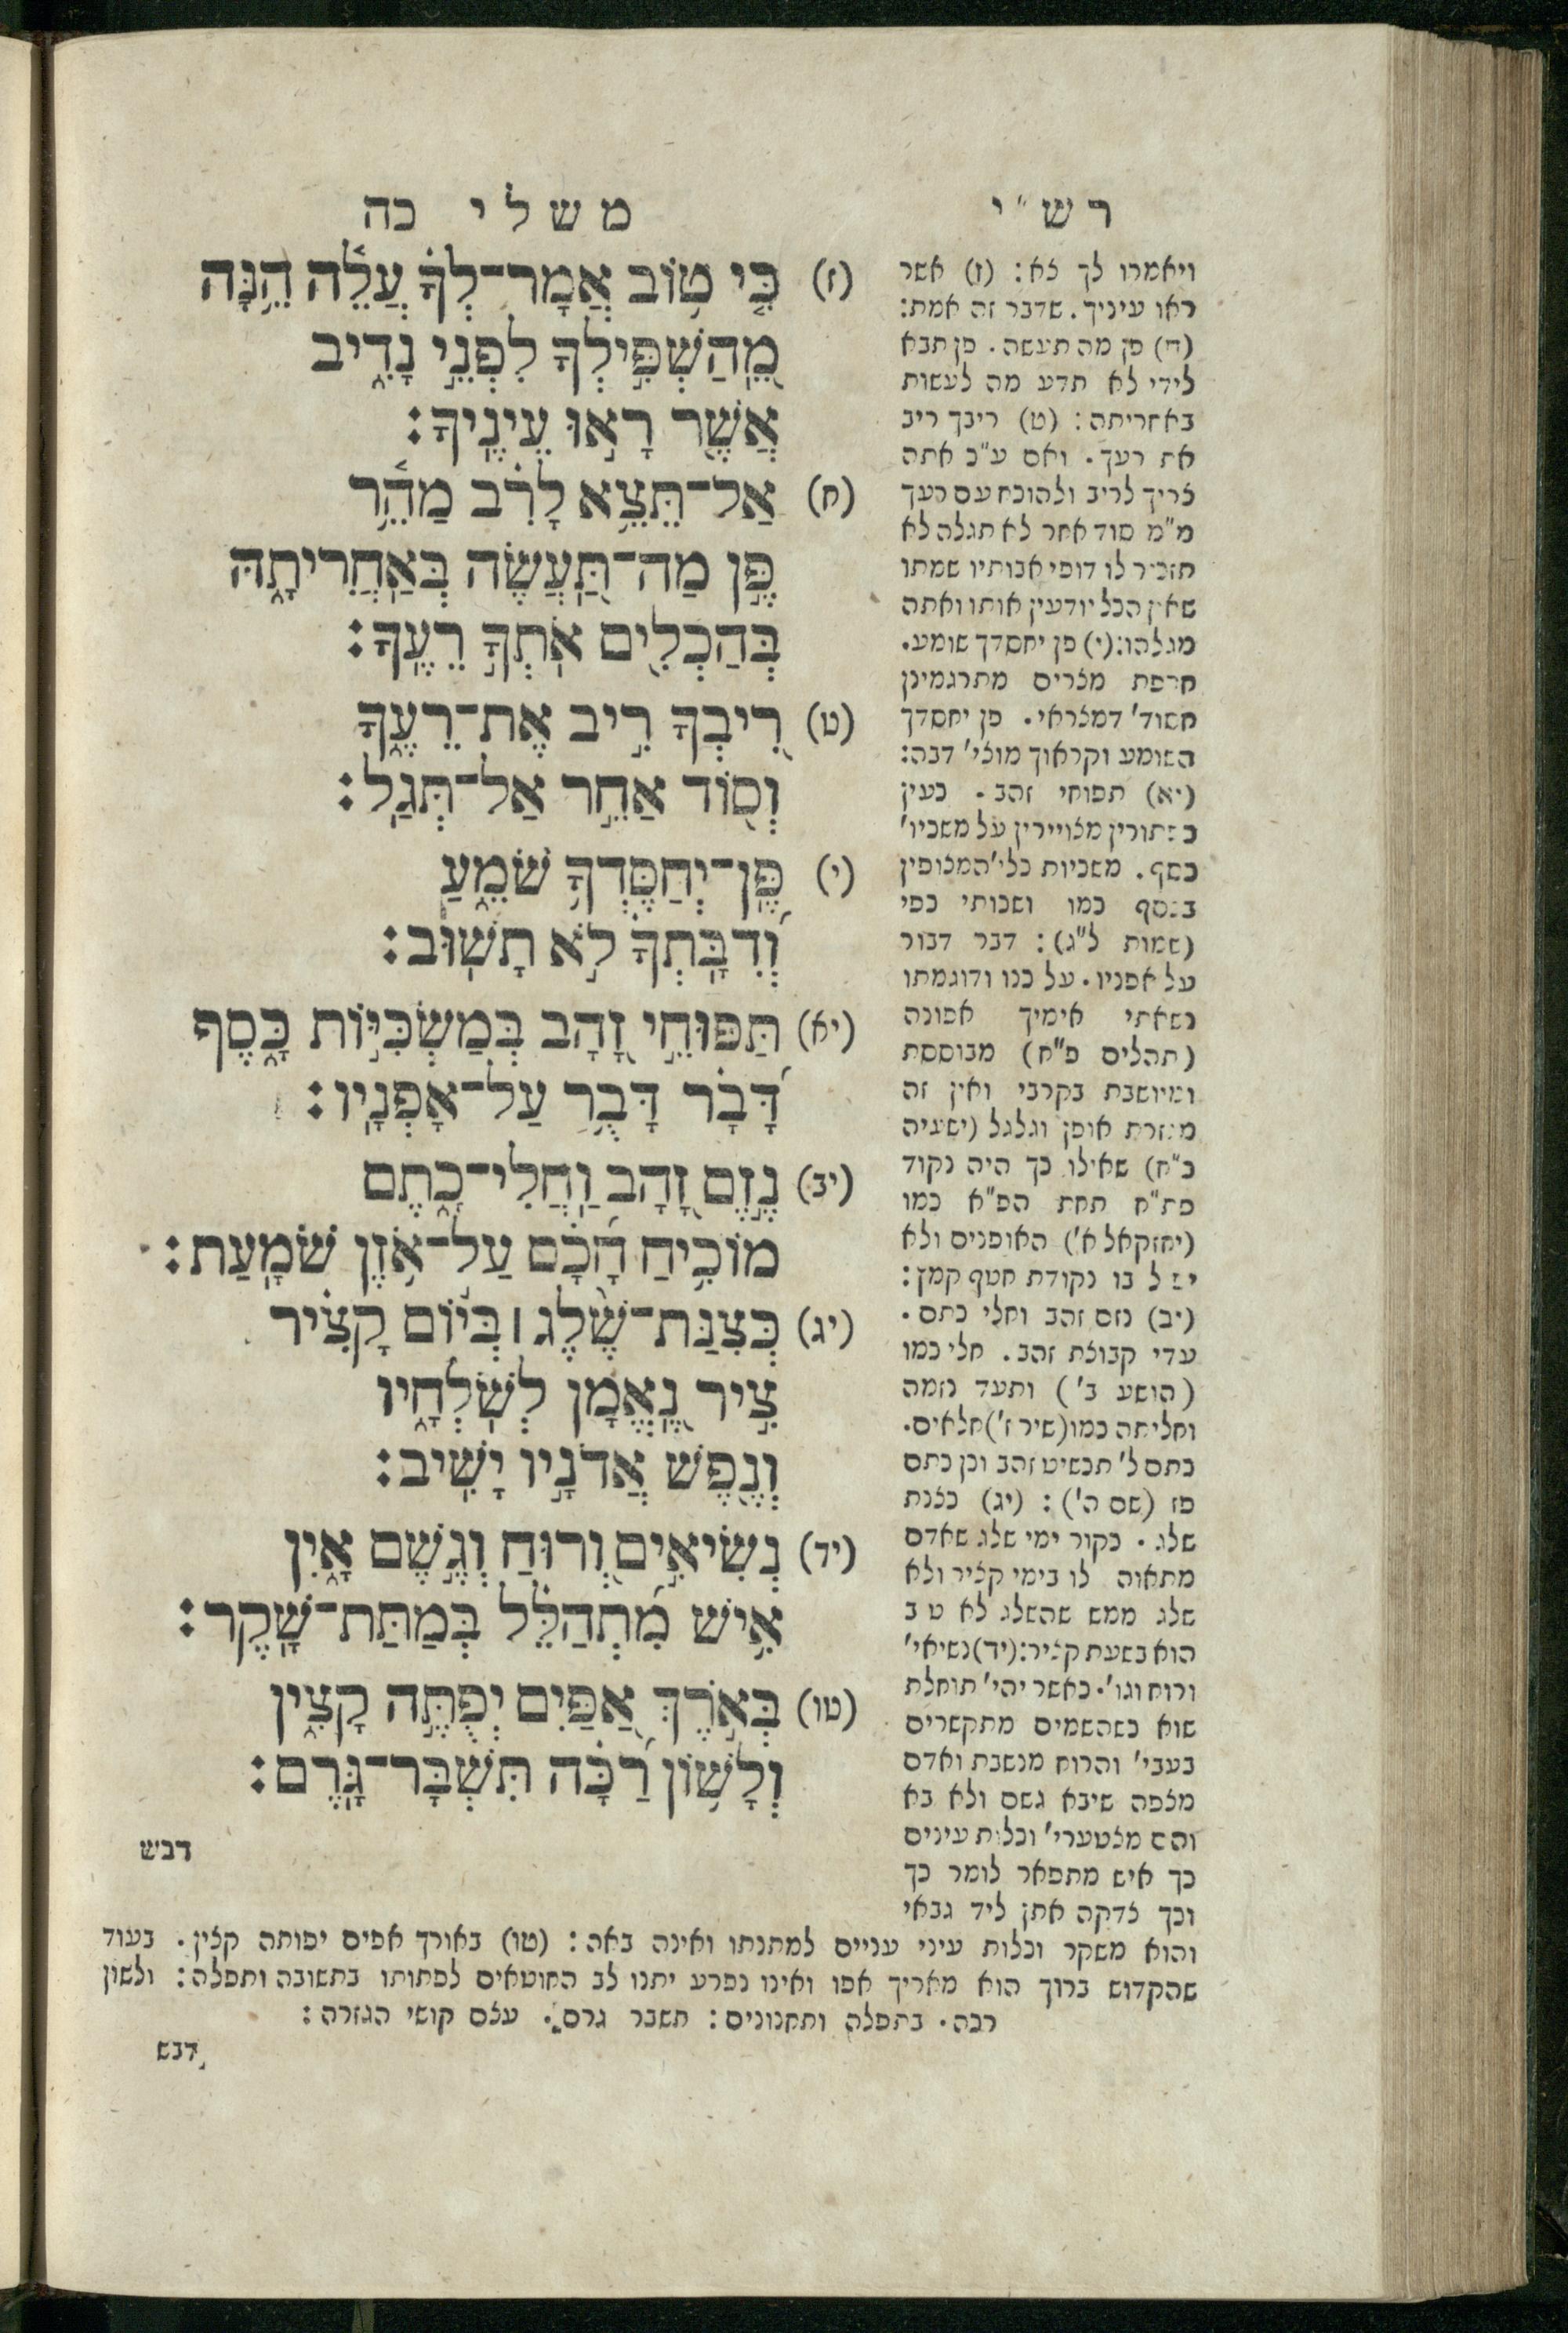 רש״י
ויאמרו לך צא: (ז) אשר
ראו עיניך. שדבר זה אמת:
(ח) פן מה תעשה. פן תבא
לידי לא תדע מה לעשות
באחריתה: (ט) ריבך ריב
את רעך. ואם ע״כ אתה
צריך לריב ולהוכח עם רעך
מ״מ סוד אחר לא תגלה לא
תזכיר לו דופי אבותיו שמתו
שאין הכל יודעין אותו ואתה
מגלהו: (י) פן יחסדך שומע.
חרפת מצרים מתרגמינן
חסוד׳ דמצראי. פן יחסדך
השומע וקראוך מוצי׳ דבה:
(יא) תפוחי זהב. כעין
כפתורין מצויירין על משכיו׳
כסף. משכיות כלי׳ המצופין
בכסף כמו ושכותי כפי
(שמות ל״ג): דבר דבור
על אפניו. על כנו ודוגמתו
נשאתי אימיך אפונה
(תהלים פ״ח) מבוססת
ומיושבת בקרבי ואין זה
מגזרת אופן וגלגל (ישעיה
כ״ח) שאילו כך היה נקוד
פת״ח תחת הפ״א כמו
(יחזקאל א׳) האופנים ולא
יפל בו נקודת חטף קמץ:
(יב) נזם זהב וחלי כתם.
עדי קבוצת זהב. חלי כמו
(הושע ב׳) ותעד נזמה
וחליתה כמו (שיר ז׳) חלאים.
כתם ל׳ תכשיט זהב וכן כתם
פז (שם ה׳): (יג) כצנת
שלג. כקור ימי שלג שאדם
מתאוה לו בימי קציר ולא
שלג ממש שהשלג לא ט ב
הוא בשעת קציר: (יד) נשיאי׳
ורוח וגו׳. כאשר יהי׳ תוחלת
שוא כשהשמים מתקשרים
בעבי׳ והרוח מנשבת ואדם
מצפה שיבא גשם ולא בא
והם מצטערי׳ וכלות עינים
כך איש מתפאר לומר כך
וכך צדקה אתן ליד גבאי
והוא משקר וכלות עיני עניים למתנתו ואינה באה: (טו) באורך אפים יפותה קצין. בעוד
שהקדוש ברוך הוא מאריך אפו ואינו נפרע יתנו לב החוטאים לפתותו בתשובה ותפלה: ולשון
רבה. בתפלה ותחנונים: תשבר גרם. עצם קושי הגזרה:
דבש
משלי כה
(ז) כִּ֤י ט֥וֹב אֲמָר־לְךָ֗ עֲלֵ֫ה הֵ֥נָּה
מֵֽ֭הַשְׁפִּ֣ילְךָ לִפְנֵ֣י נָדִ֑יב
אֲשֶׁ֖ר רָא֣וּ עֵינֶֽיךָ:
(ח) אַל־תֵּצֵ֥א לָרִ֗ב מַ֫הֵ֥ר
פֶּ֣ן מַה־תַּֽ֭עֲשֶׂה בְּאַֽחֲרִיתָ֑הּ
בְּהַכְלִ֖ים אֹתְךָ֣ רֵעֶֽךָ:
(ט) רִֽ֭יבְךָ רִ֣יב אֶת־רֵעֶ֑ךָ
וְס֖וֹד אַחֵ֣ר אַל־תְּגָֽל:
(י) פֶּֽן־יְחַסֶּדְךָ֥ שֹׁמֵ֑עַ
וְ֝דִבָּֽתְךָ֗ לֹ֣א תָשֽׁוּב:
(יא) תַּפּוּחֵ֣י זָ֭הָב בְּמַשְׂכִּיּ֣וֹת כָּ֑סֶף
דָּ֝בָ֗ר דָּבֻ֥ר עַל־אָפְנָֽיו:
(יב) נֶ֣זֶם זָ֭הָב וַֽחֲלִי־כָ֑תֶם
מוֹכִ֥יחַ חָ֝כָ֗ם עַל־אֹ֥זֶן שֹׁמָֽעַת:
(יג) כְּצִנַּת־שֶׁ֨לֶג ׀ בְּי֬וֹם קָצִ֗יר
צִ֣יר נֶֽ֭אֱמָן לְשֹֽׁלְחָ֑יו
וְנֶ֖פֶשׁ אֲדֹנָ֣יו יָשִֽׁיב:
(יד) נְשִׂיאִ֣ים וְ֭רוּחַ וְגֶ֣שֶׁם אָ֑יִן
אִ֥ישׁ מִ֝תְהַלֵּ֗ל בְּמַתַּת־שָֽׁקֶר:
(טו) בְּאֹ֣רֶךְ אַ֭פַּיִם יְפֻתֶּ֣ה קָצִ֑ין
וְלָשׁ֥וֹן רַ֝כָּ֗ה תִּשְׁבָּר־גָּֽרֶם:
דבש